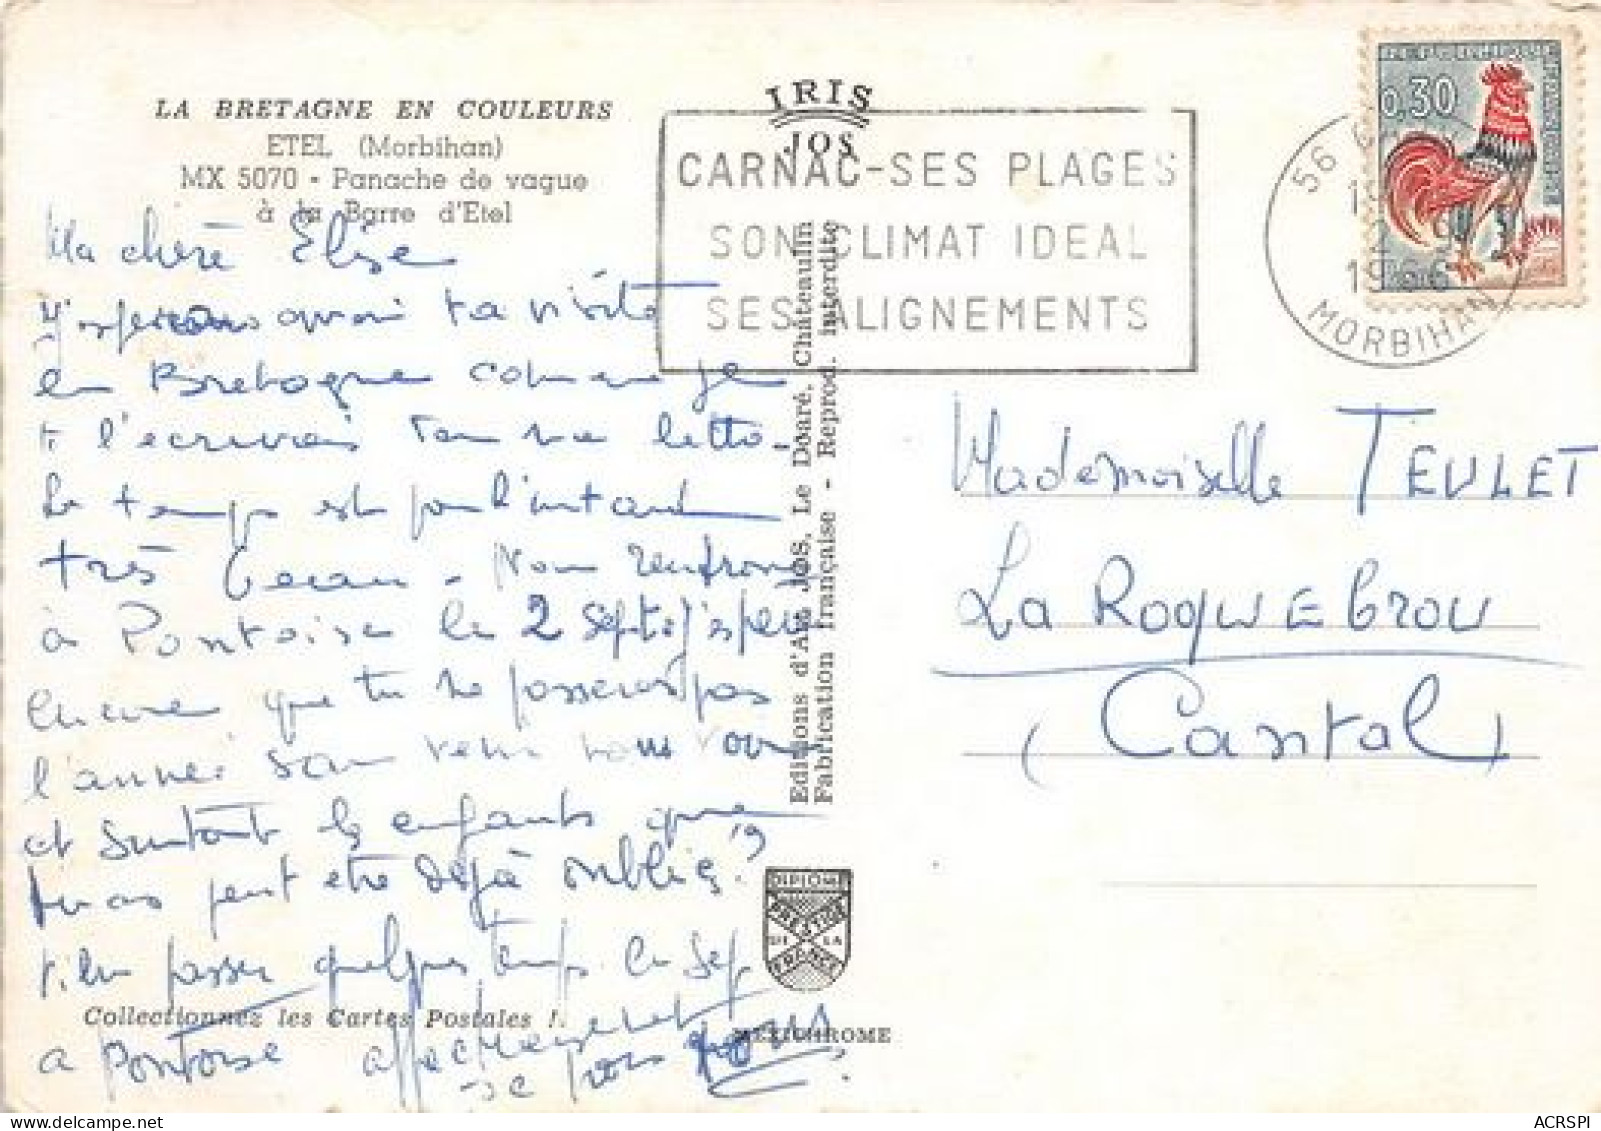 LA BRETAGNE EN COULEURS
ETEL (Morbihan)
MX 5070 - Panache de vague
à la Barre d'Etel
Ma chère Elyse
J'espérais avoir ta visite
en Bretagne comme je
t l'écrivais dans ma lettre.
Le temps est pour l'instant
très beau. Nous rentrons
à Pontoise le 2 Sept. J'espère
encore que tu ne passeras pas
l'année sans venir nous voir
et surtout les enfants que
tu as peut être déjà oubliés?
Viens passer quelques temps en Sept
a Pontoise affectueusement
Collectionnez les Cartes Postales !
IRIS
JOS
CARNAC-SES PLAGES
SON CLIMAT IDEAL
SES ALIGNEMENTS
Editions d'Art JOS, Le Doaré, Châteaulin
Fabrication française - Reprod. interdite
DIPLOME
PRESTIGE
DE LA
FRANCE
MEXICHROME
REPUBLIQUE FRANCAISE
0,30
56
MORBIHAN
Mademoiselle TEULET
LA ROQUEbrou
(Cantal)
ACRSPI